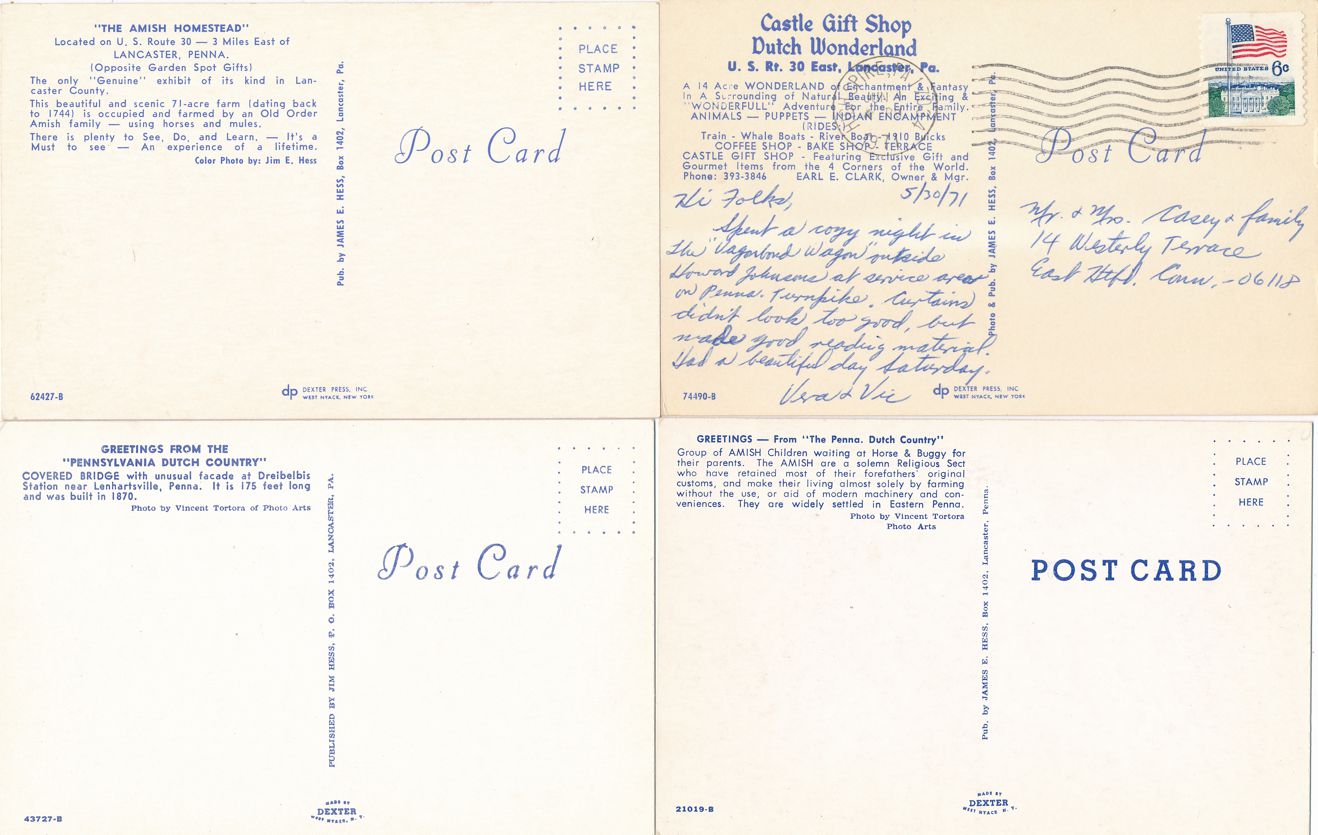 "THE AMISH HOMESTEAD"
Located on U. S. Route 30 — 3 Miles East of
LANCASTER, PENNA.
(Opposite Garden Spot Gifts)
The only "Genuine" exhibit of its kind in Lan-
caster County.
This beautiful and scenic 71-acre farm (dating back
to 1744) is occupied and farmed by an Old Order
Amish family — using horses and mules.
There is plenty to See, Do, and Learn. — It's a
Must to see — An experience of a lifetime.
Color Photo by: Jim E. Hess
Pub. by JAMES E. HESS, Box 1402, Lancaster, Pa.
PLACE
STAMP
HERE
Post Card
62427-B
dp DEXTER PRESS, INC.
WEST NYACK, NEW YORK
Castle Gift Shop
Dutch Wonderland
U. S. Rt. 30 East, Lancaster, Pa.
A 14 Acre WONDERLAND of Enchantment & Fantasy
In A Surrounding of Natural Beauty. An Exciting &
"WONDERFULL" Adventure For the Entire Family.
ANIMALS — PUPPETS — INDIAN ENCAMPMENT
(RIDES)
Train - Whale Boats - River Boat - 1910 Buicks
COFFEE SHOP - BAKE SHOP - TERRACE
CASTLE GIFT SHOP - Featuring Exclusive Gift and
Gourmet Items from the 4 Corners of the World.
Phone: 393-3846 EARL E. CLARK, Owner & Mgr.
5/30/71
Hi Folks,
Spent a cozy night in
the "Vagabond Wagon" outside
Howard Johnsons at service area
on Penna. Turnpike. Curtains
didn't look too good, but
made good reading material.
Had a beautiful day Saturday.
Vera & Vic
Photo & Pub. by JAMES E. HESS, Box 1402, Lancaster, Pa.
UNITED STATES 6c
Post Card
Mr. & Mrs. Casey & family
14 Westerly Terrace
East Htfd. Conn. - 06118
74490-B
dp DEXTER PRESS, INC.
WEST NYACK, NEW YORK
GREETINGS FROM THE
"PENNSYLVANIA DUTCH COUNTRY"
COVERED BRIDGE with unusual facade at Dreibelbis
Station near Lenhartsville, Penna. It is 175 feet long
and was built in 1870.
Photo by Vincent Tortora of Photo Arts
PUBLISHED BY JIM HESS, P. O. BOX 1402, LANCASTER, PA.
PLACE
STAMP
HERE
Post Card
43727-B
MADE BY
DEXTER
WEST NYACK, N. Y.
GREETINGS — From "The Penna. Dutch Country"
Group of AMISH Children waiting at Horse & Buggy for
their parents. The AMISH are a solemn Religious Sect
who have retained most of their forefathers' original
customs, and make their living almost solely by farming
without the use, or aid of modern machinery and con-
veniences. They are widely settled in Eastern Penna.
Photo by Vincent Tortora
Photo Arts
Pub. by JAMES E. HESS, Box 1402, Lancaster, Penna.
PLACE
STAMP
HERE
POST CARD
21019-B
MADE BY
DEXTER
WEST NYACK, N. Y.